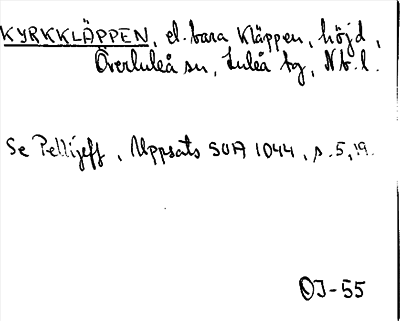 KYRKKLÄPPEN, el. bara Kläppen, höjd,
Överluleå sn, Luleå tg, Nb. l.
Se Pellijeff, Uppsats SOA 1044, s. 5, 19.
OJ-55